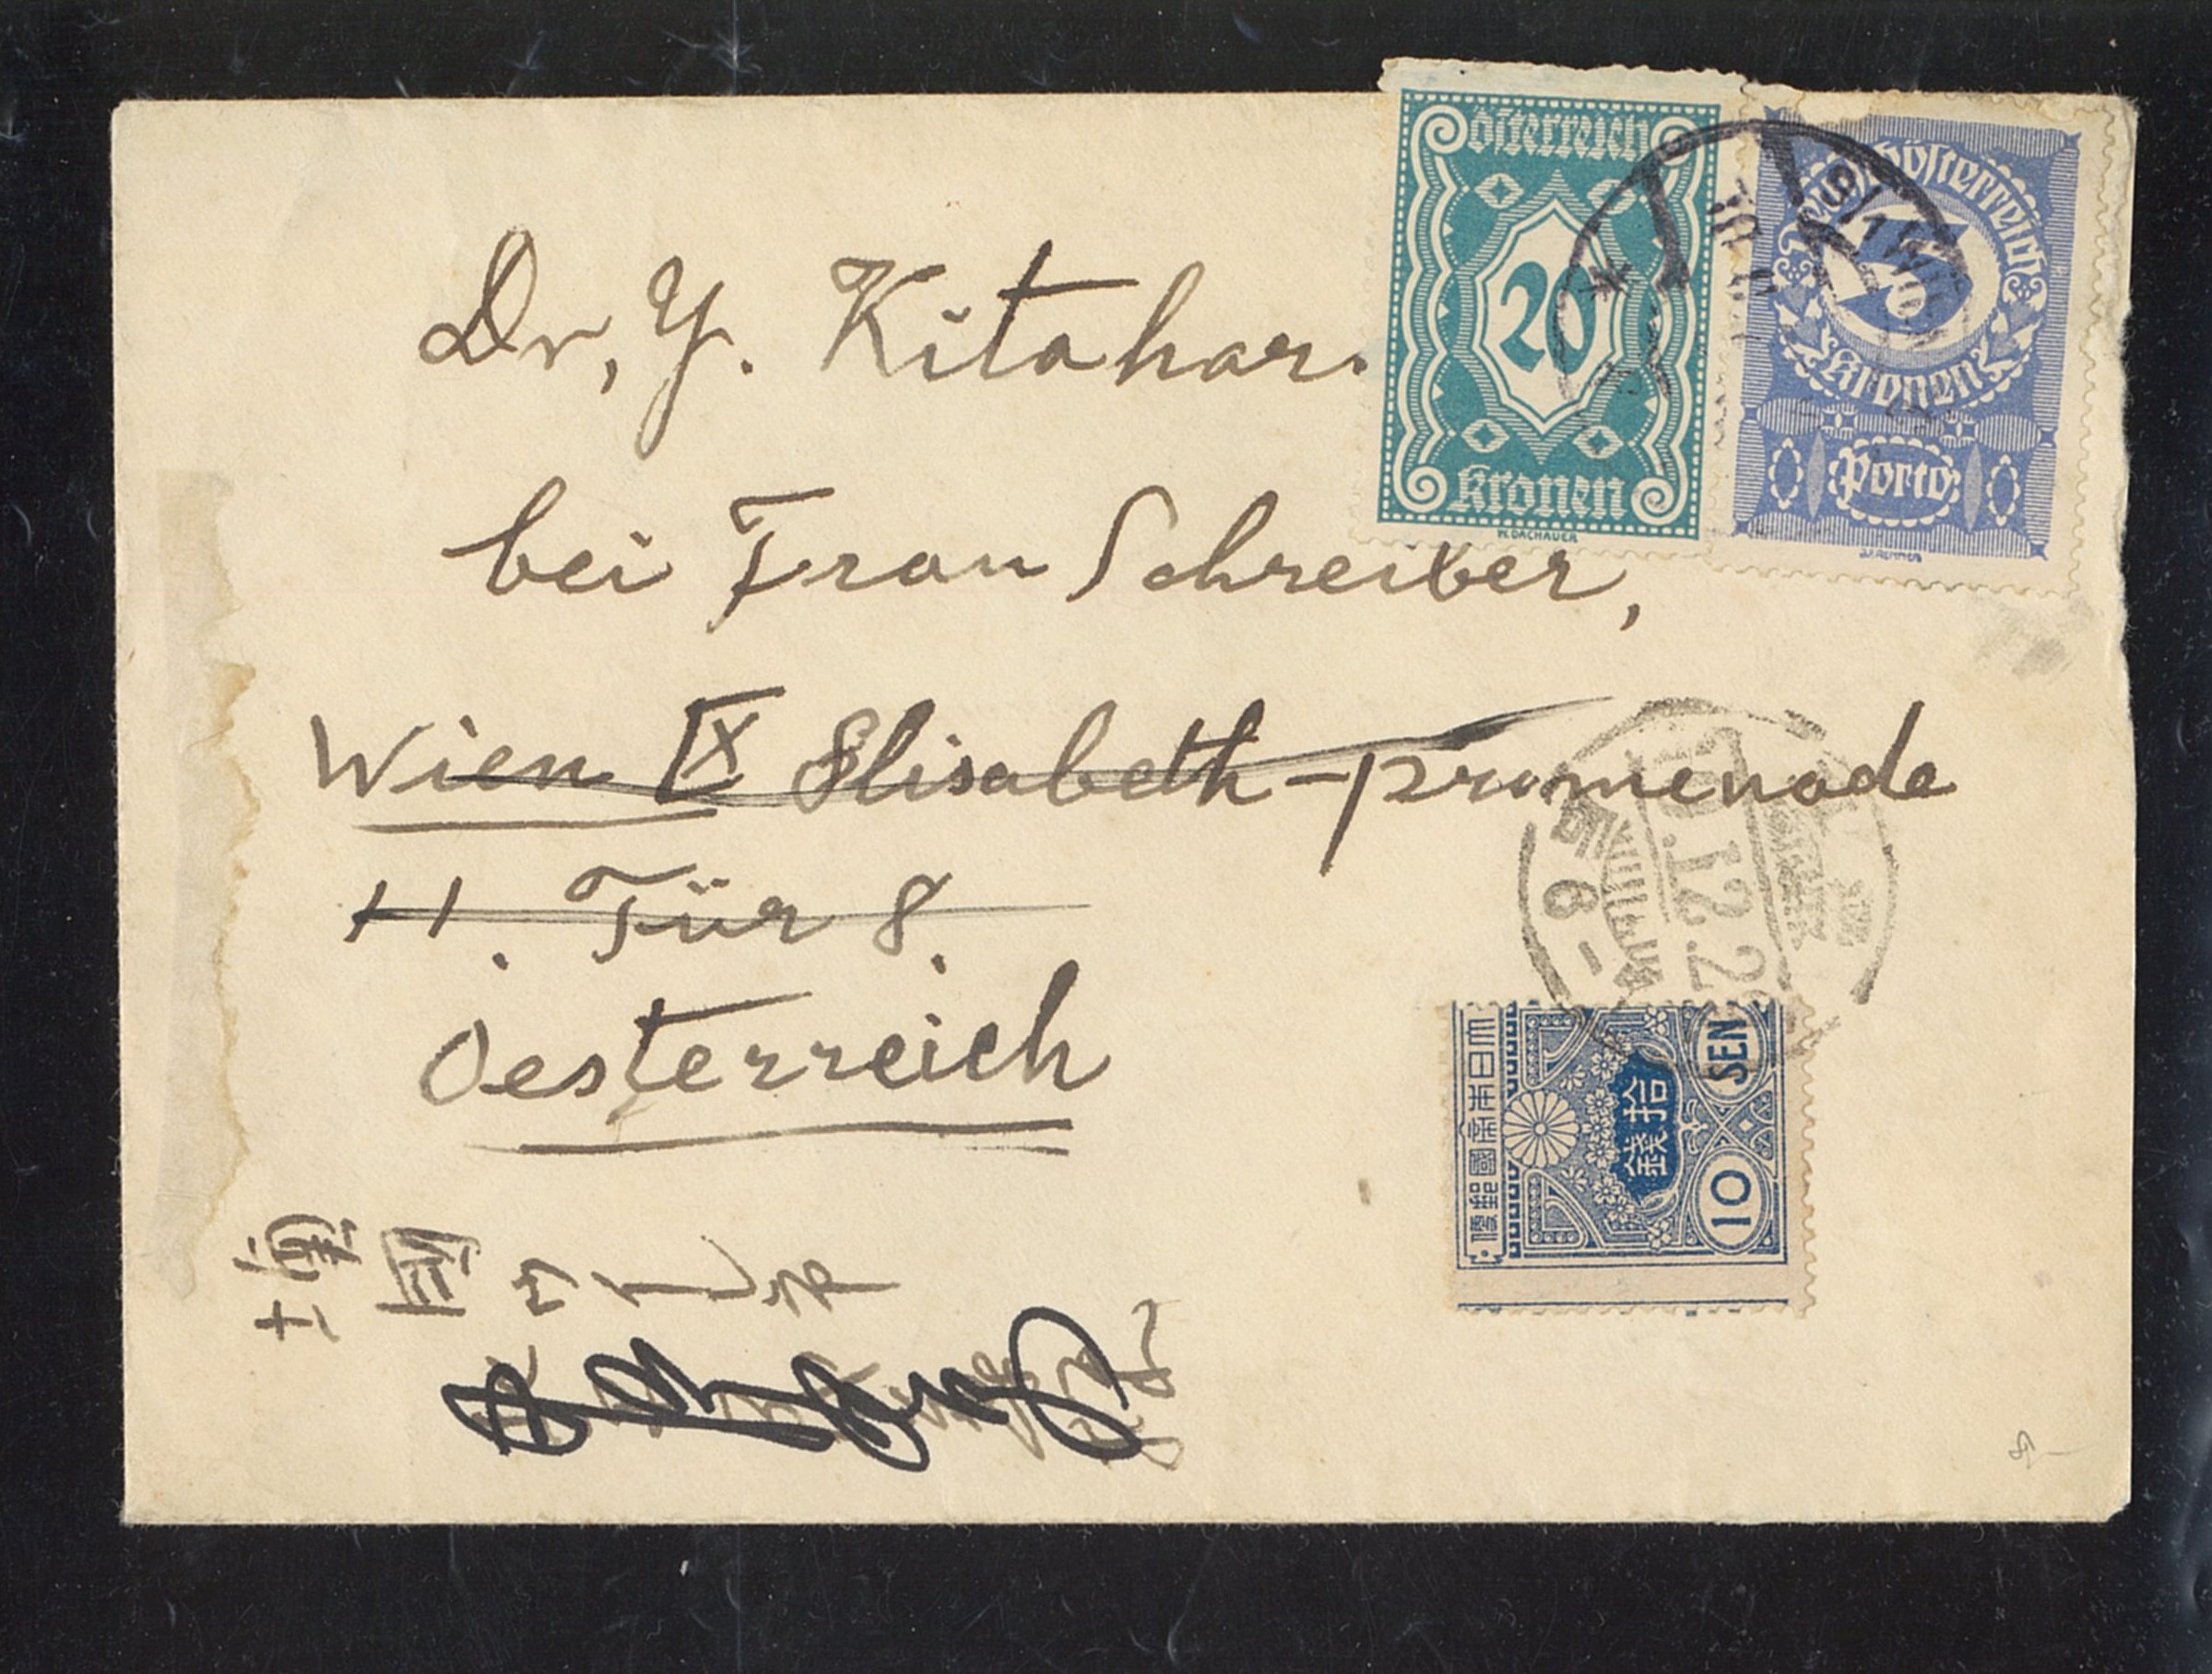 Dr, Y. Kitahar
bei Frau Schreiber,
Wien IX Elisabeth-promenade
11. Tür 8.
Oesterreich
Österreich
20
Kronen
W. DACHAUER
Österreich
Kronen
Porto
9/1 WIEN
10.12.2
6 -
大日本帝國郵便
拾錢
10 SEN
墺國